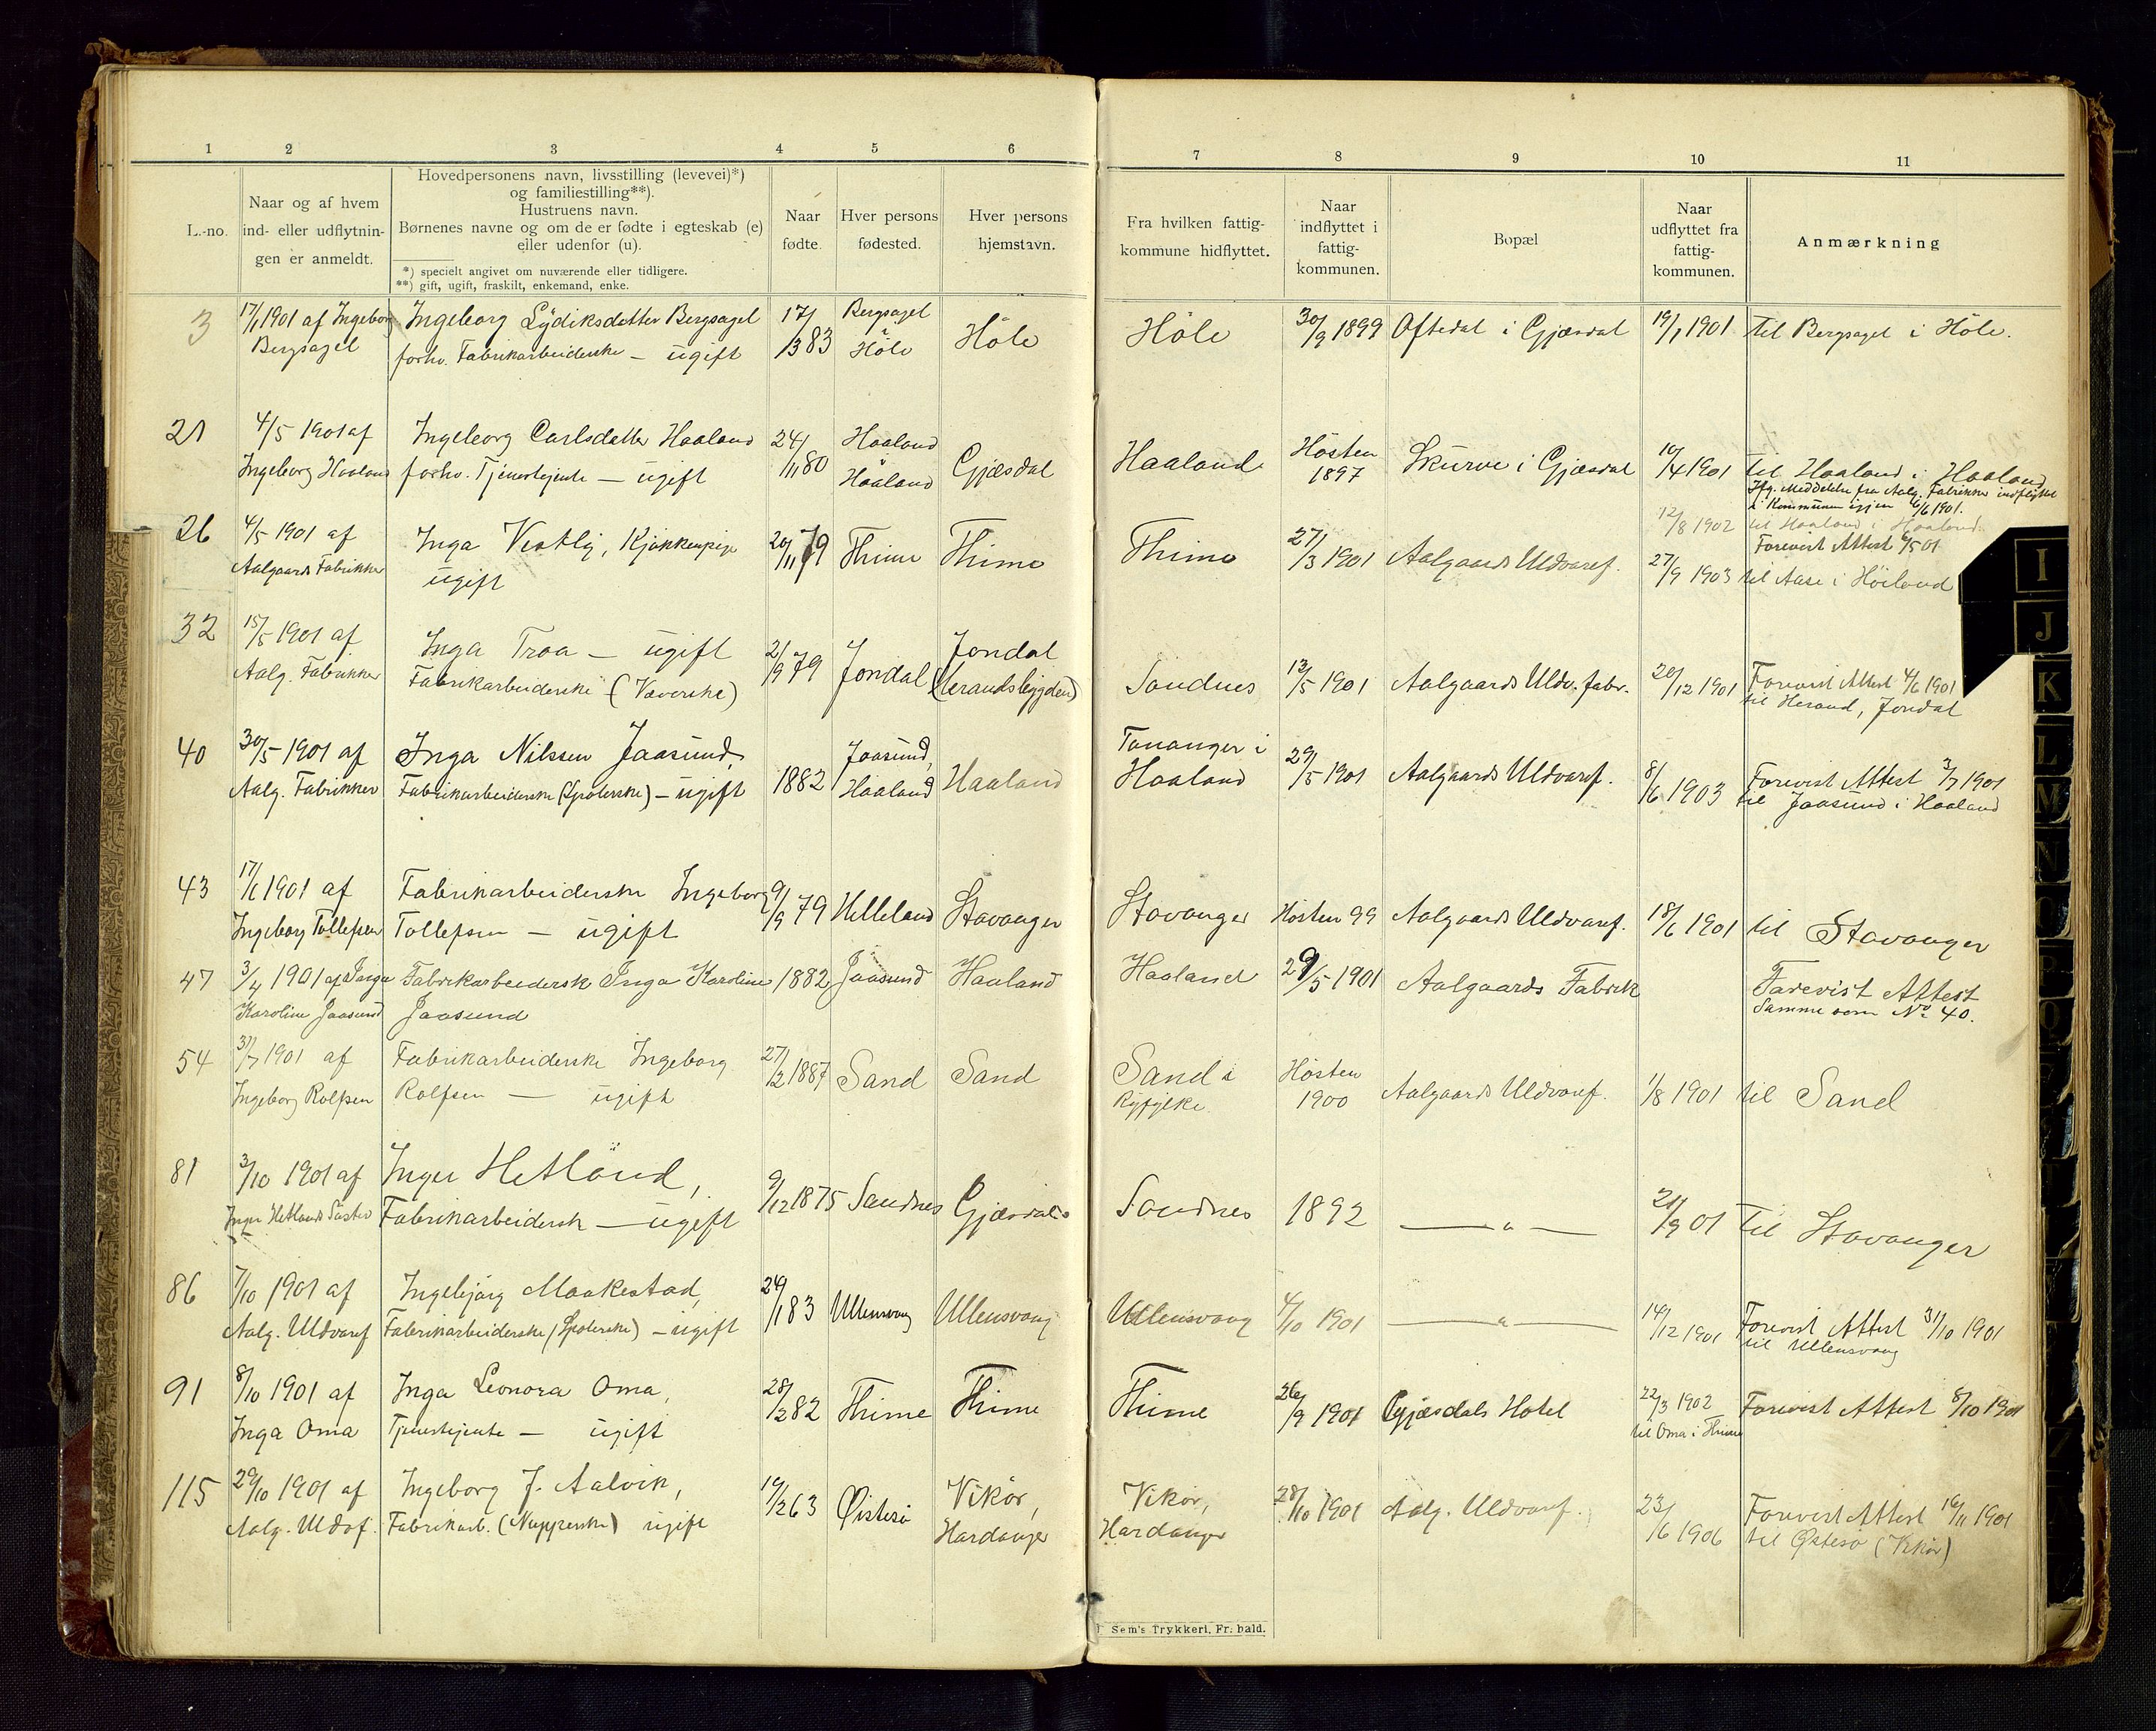 1 2 3 4 5 6 7 8 9 10 11
L.-no.
Naar og af hvem
ind- eller udflytnin-
gen er anmeldt.
Hovedpersonens navn, livsstilling (levevei)*)
og familiestilling**).
Hustruens navn.
Børnenes navne og om de er fødte i egteskab (e)
eller udenfor (u).
*) specielt angivet om nuværende eller tidligere.
**) gift, ugift, fraskilt, enkemand, enke.
Naar
fødte.
Hver persons
fødested.
Hver persons
hjemstavn.
Fra hvilken fattig-
kommune hidflyttet.
Naar
indflyttet i
fattig-
kommunen.
Bopæl
Naar
udflyttet fra
fattig-
kommunen.
Anmærkning
3 17/1 1901 af Ingeborg Ingeborg Lydiksdatter Bergsagel 17/ Bergsagel Höle Höle 30/9 1899 Oftedal i Gjæsdal 19/1 1901 til Bergsagel i Höle.
Bergsagel forhv. Fabrikarbeiderske — ugift /3 83 Höle
21 4/5 1901 af Ingeborg Carlsdatter Haaland 24/ Haaland Gjæsdal Haaland Hösten Skurve i Gjæsdal 10/4 1901 til Haaland i Haaland
Ingeborg Haaland forhv. Tjenestejente — ugift /11 80 Haaland 1897 Ifg. Meddelelse fra Aalg. Fabrikker indflyttet
i Kommunen igjen 6/6 1901.
12/8 1902 til Haaland i Haaland.
26 4/5 1901 af Inga Vestly, Kjökkenpige 20/11 79 Thime Thime Thime 27/3 1901 Aalgaards Uldvaref. Forevist Attest 6/5 01
Aalgaards Fabrikker ugift 27/9 1903 til Aase i Höiland
32 15/5 1901 af Inga Traa — ugift 2/9 79 Jondal Jondal Sandnes 13/5 1901 Aalgaards Uldv. fabr. 20/12 1901 Forevist Attest 4/6 1901
Aalg. Fabrikker Fabrikarbeiderske (Væverske) (Herandsbygden) til Herand, Jondal
40 30/5 1901 af Inga Nilssen Jaasund, 1882 Jaasund, Haaland Tananger i 29/5 1901 Aalgaards Uldvaref. 8/6 1903 Forevist Attest 3/7 1901
Aalg. Fabrikker Fabrikarbeiderske (Spolerske) — ugift Haaland Haaland til Jaasund i Haaland
43 17/6 1901 af Fabrikarbeiderske Ingeborg 9/9 79 Helleland Stavanger Stavanger Hösten 99 Aalgaards Uldvaref. 18/6 1901 til Stavanger
Ingeborg Tollefsen Tollefsen — ugift
47 3/4 1901 af Inga Fabrikarbeidersk Inga Karoline 1882 Jaasund Haaland Haaland 29/5 1901 Aalgaards Fabrik Forevist Attest
Karoline Jaasund Jaasund Samme som No 40.
54 31/7 1901 af Fabrikarbeiderske Ingeborg 27/2 1887 Sand Sand Sand i Hösten Aalgaards Uldvaref. 1/8 1901 til Sand
Ingeborg Rolfsen Rolfsen — ugift Ryfylke 1900
81 3/10 1901 af Inger Hetland, 9/12 1875 Sandnes Gjæsdal Sandnes 1892 — " — 21/9 01 til Stavanger
Inger Hetlands Söster Fabrikarbeidersk — ugift
86 7/10 1901 af Ingebjörg Maakestad, 24/1 83 Ullensvang Ullensvang Ullensvang 4/10 1901 — " — 14/12 1901 Forevist Attest 31/10 1901
Aalg. Uldvaref Fabrikarbeiderske (Spolerske) — ugift til Ullensvang
91 8/10 1901 af Inga Leonora Oma, 28/2 82 Thime Thime Thime 26/9 1901 Gjæsdals Hotel 22/3 1902 Forevist Attest 8/10 1901
Inga Oma Tjenestejente — ugift til Oma i Thime
115 29/10 1901 af Ingeborg J. Aalvik, 19/2 63 Östesö Vikör, Vikör, 28/10 1901 Aalg. Uldvaref. 23/6 1906 Forevist Attest 16/11 1901
Aalg. Uldvf. Fabrikarb. (Nupperske) ugift Hardanger Hardanger til Östesö (Vikör)
Sem's Trykkeri, Fr: hald.
I
J
K
L
M
N
O
P